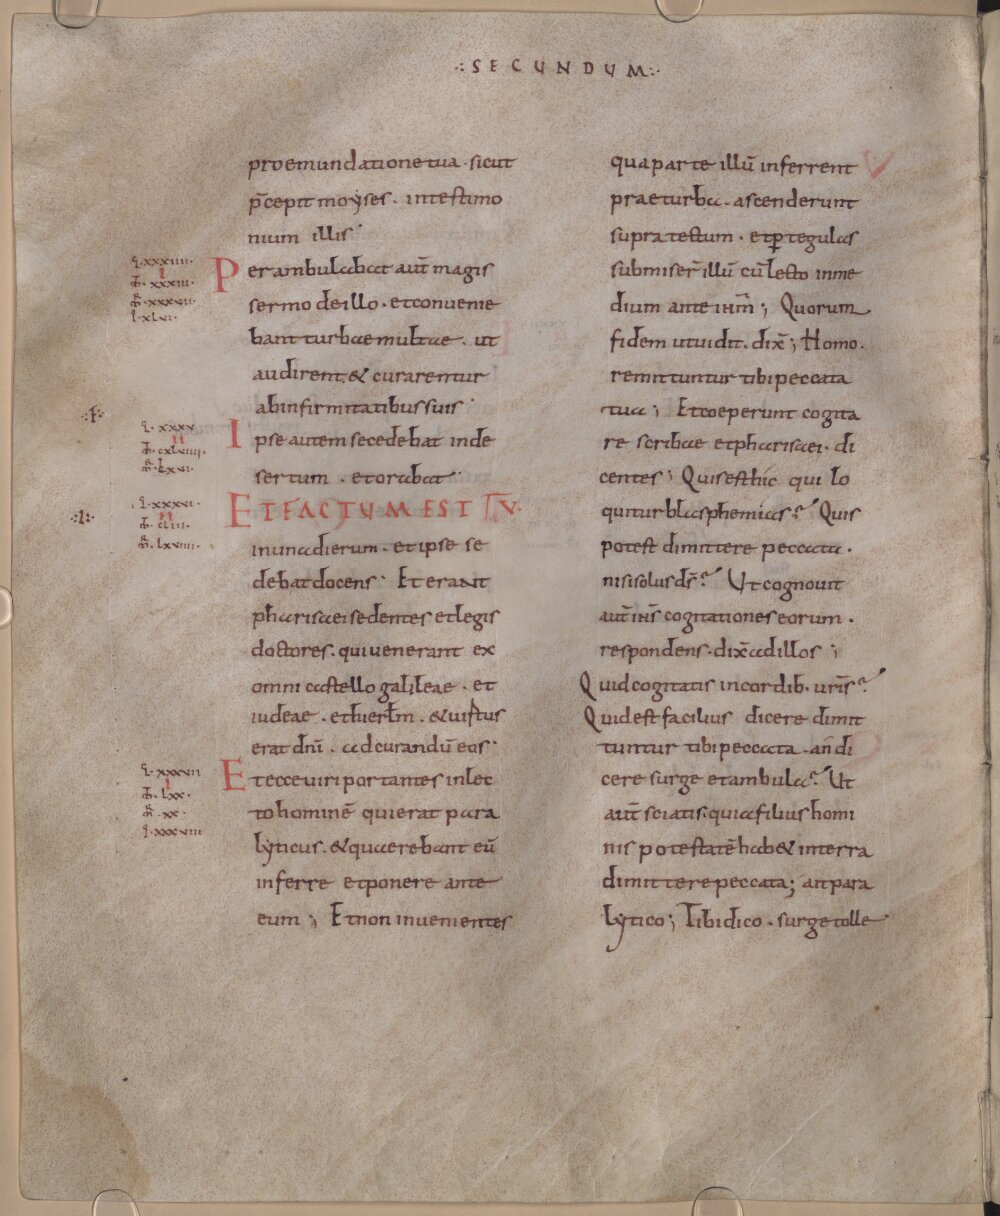 ·:SECUNDUM:·
pro emundatione tua · sicut
p̄cepit moyses · in testimo
nium illis·
L·xxxiiii·
I
xxxiii·
xxxvii·
L·xlvi·
Perambulabat aut̄ magis
sermo de illo · et convenie
bant turbae multae · ut
audirent · & curarentur
ab infirmitatibus suis·
L·xxxv
II
cxlviiii·
lxvi·
Ipse autem secedebat in de
sertum · et orabat·
L·xxxvi·
II
cliii·
lxviiii·
ET FACTUM EST IN
in una dierum · et ipse se
debat docens· Et erant
pharisaei sedentes et legis
doctores · qui venerant ex
omni castello galileae · et
iudeae · et hierłm · & virtus
erat dnī · ad curandū eos·
L·xxxvii
I
lxx·
xx·
L·xxxviii
Et ecce viri portantes in lec
to hominē qui erat para
lyticus · & quaerebant eū
inferre et ponere ante
eum ; Et non invenientes
qua parte illū inferrent
prae turba · ascenderunt
supra tectum · et p̱ tegulas
submiser̄ illū cū lecto in me
dium ante ihm̄ ; Quorum
fidem ut vidit · dix̄ ; Homo ·
remittuntur tibi peccata
tua ; Et coeperunt cogita
re scribae et pharisaei · di
centes ; Quis est hic qui lo
quitur blasphemias? Quis
potest dimittere peccata ·
nisi solus ds̄? Ut cognovit
aut̄ ihs̄ cogitationes eorum ·
respondens · dix̄ ad illos ;
Quid cogitatis in cordib · vr̄is?
Quid est facilius dicere dimit
tuntur tibi peccata · an di
cere surge et ambula? Ut
aut̄ sciatis · quia filius homi
nis potestatē hab& in terra
dimittere peccata ; ait para
lytico ; Tibi dico · surge tolle